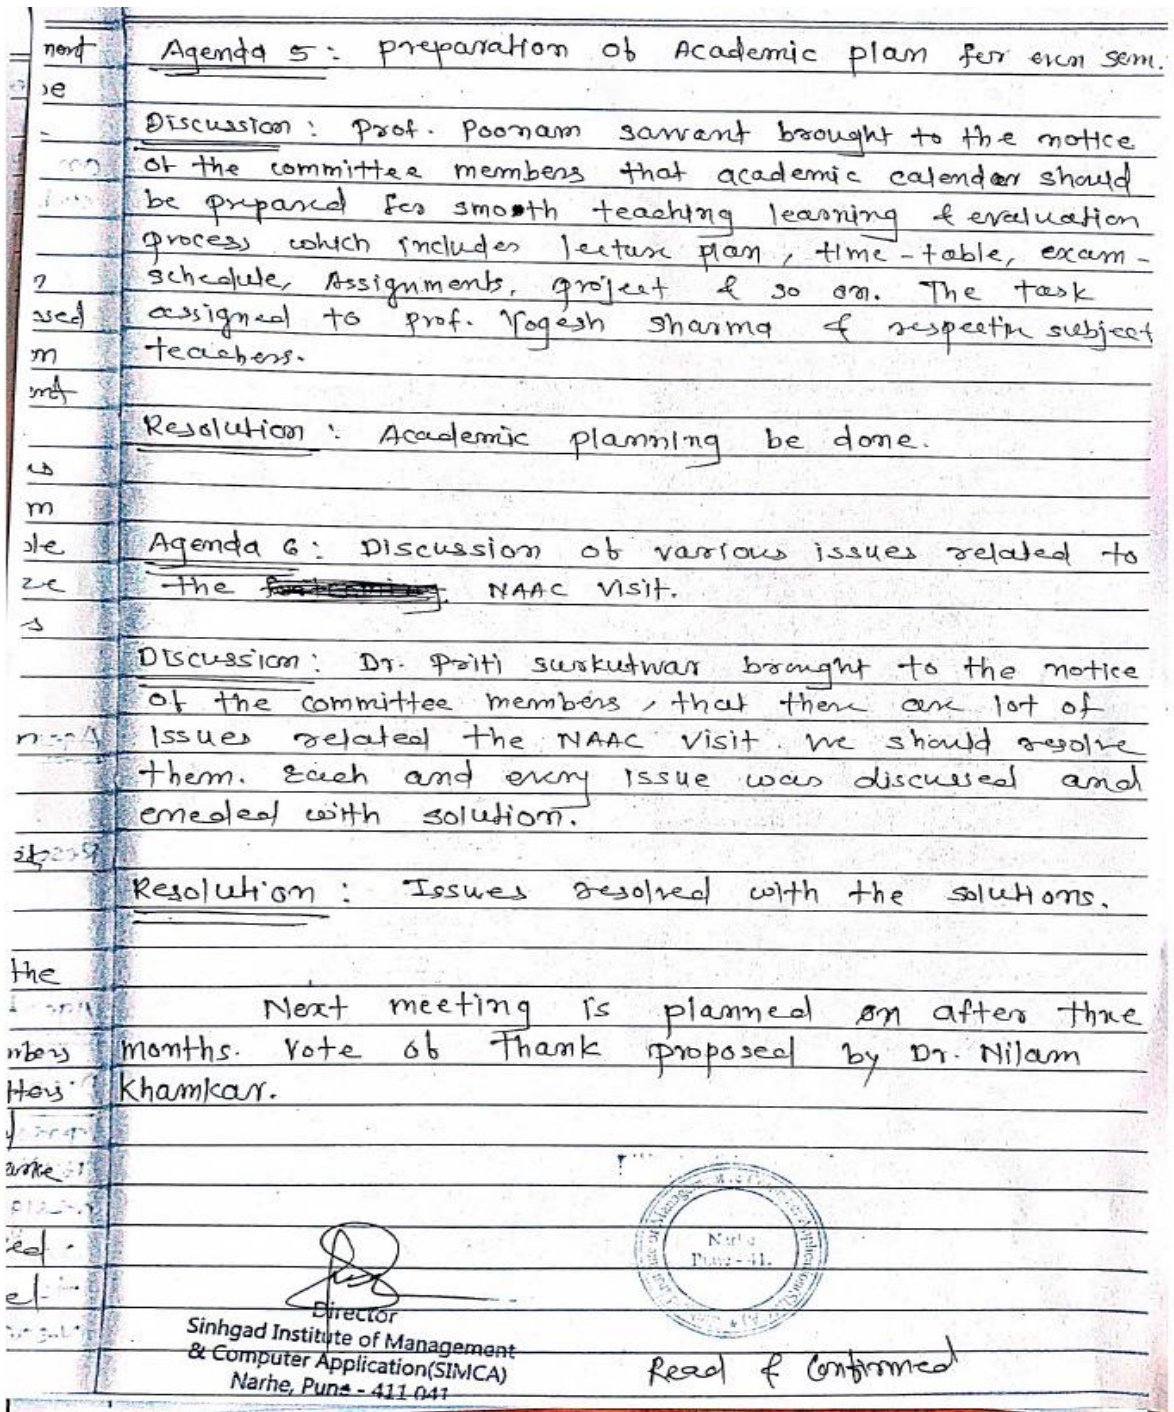 Agenda 5: preparation of Academic plan for even sem.
Discussion: Prof. Poonam sawant brought to the notice
of the committee members that academic calendar should
be prepared for smooth teaching learning & evaluation
process which includes lecture plan, time-table, exam-
schedule, Assignments, project & so on. The task
assigned to prof. Yogesh sharma & respectiv subject
teachers.
Resolution: Academic planning be done.
Agenda 6: Discussion of various issues related to
the NAAC visit.
Discussion: Dr. Priti surkutwar brought to the notice
of the committee members, that there are lot of
issues related the NAAC visit. we should resolve
them. Each and every issue was discussed and
eneded with solution.
Resolution: Issues resolved with the solutions.
Next meeting is planned on after three
months. Vote of Thank proposed by Dr. Nilam
Khamkar.
Narhe
Pune - 41.
Director
Sinhgad Institute of Management
& Computer Application(SIMCA)
Narhe, Pune - 411 041
Read & Confirmed